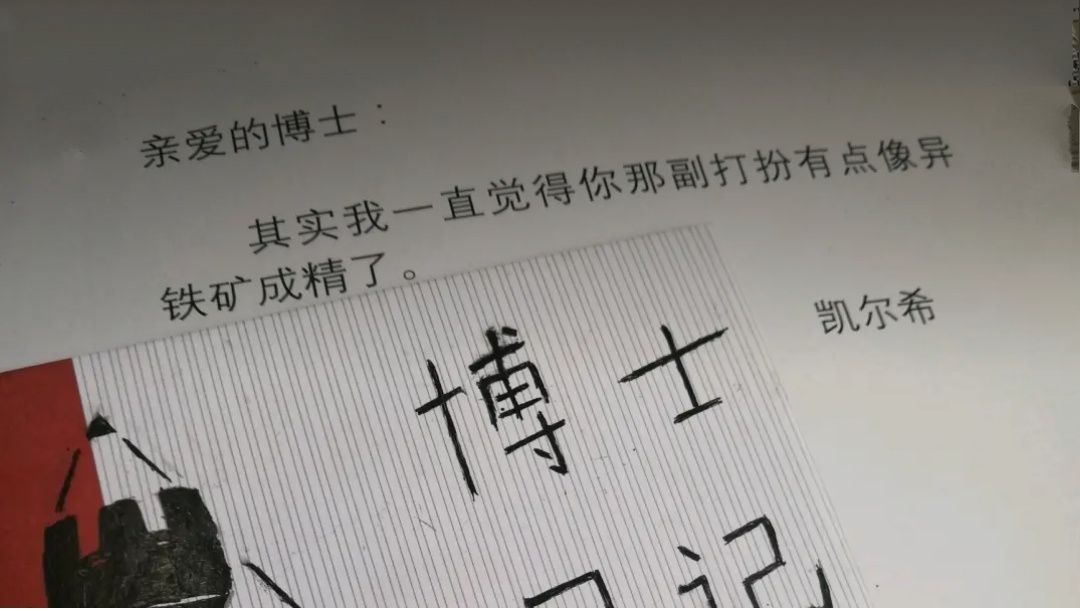 亲爱的博士：
其实我一直觉得你那副打扮有点像异
铁矿成精了。
凯尔希
博士
记